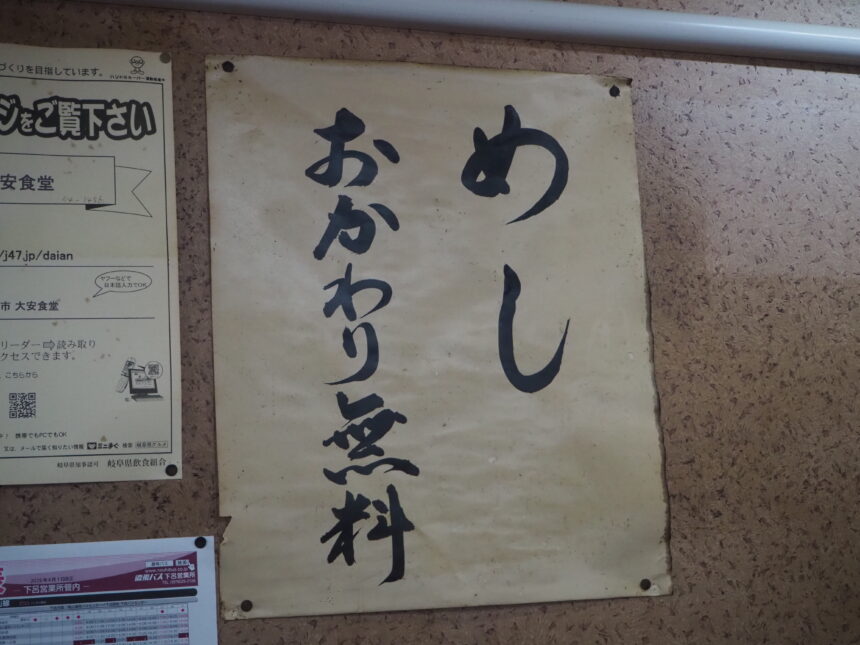 めし
おかわり無料
づくりを目指しています。
ジをご覧下さい
安食堂
/j47.jp/daian
ヤフーなどで
日本語入力でOK
市 大安食堂
リーダー⇨読み取り
クセスできます。
こちらから
携帯でもPCでもOK
又は、メールで届く知りたい情報
検索 岐阜県グルメ
岐阜県知事認可 岐阜県飲食組合
下呂営業所管内
濃飛バス下呂営業所